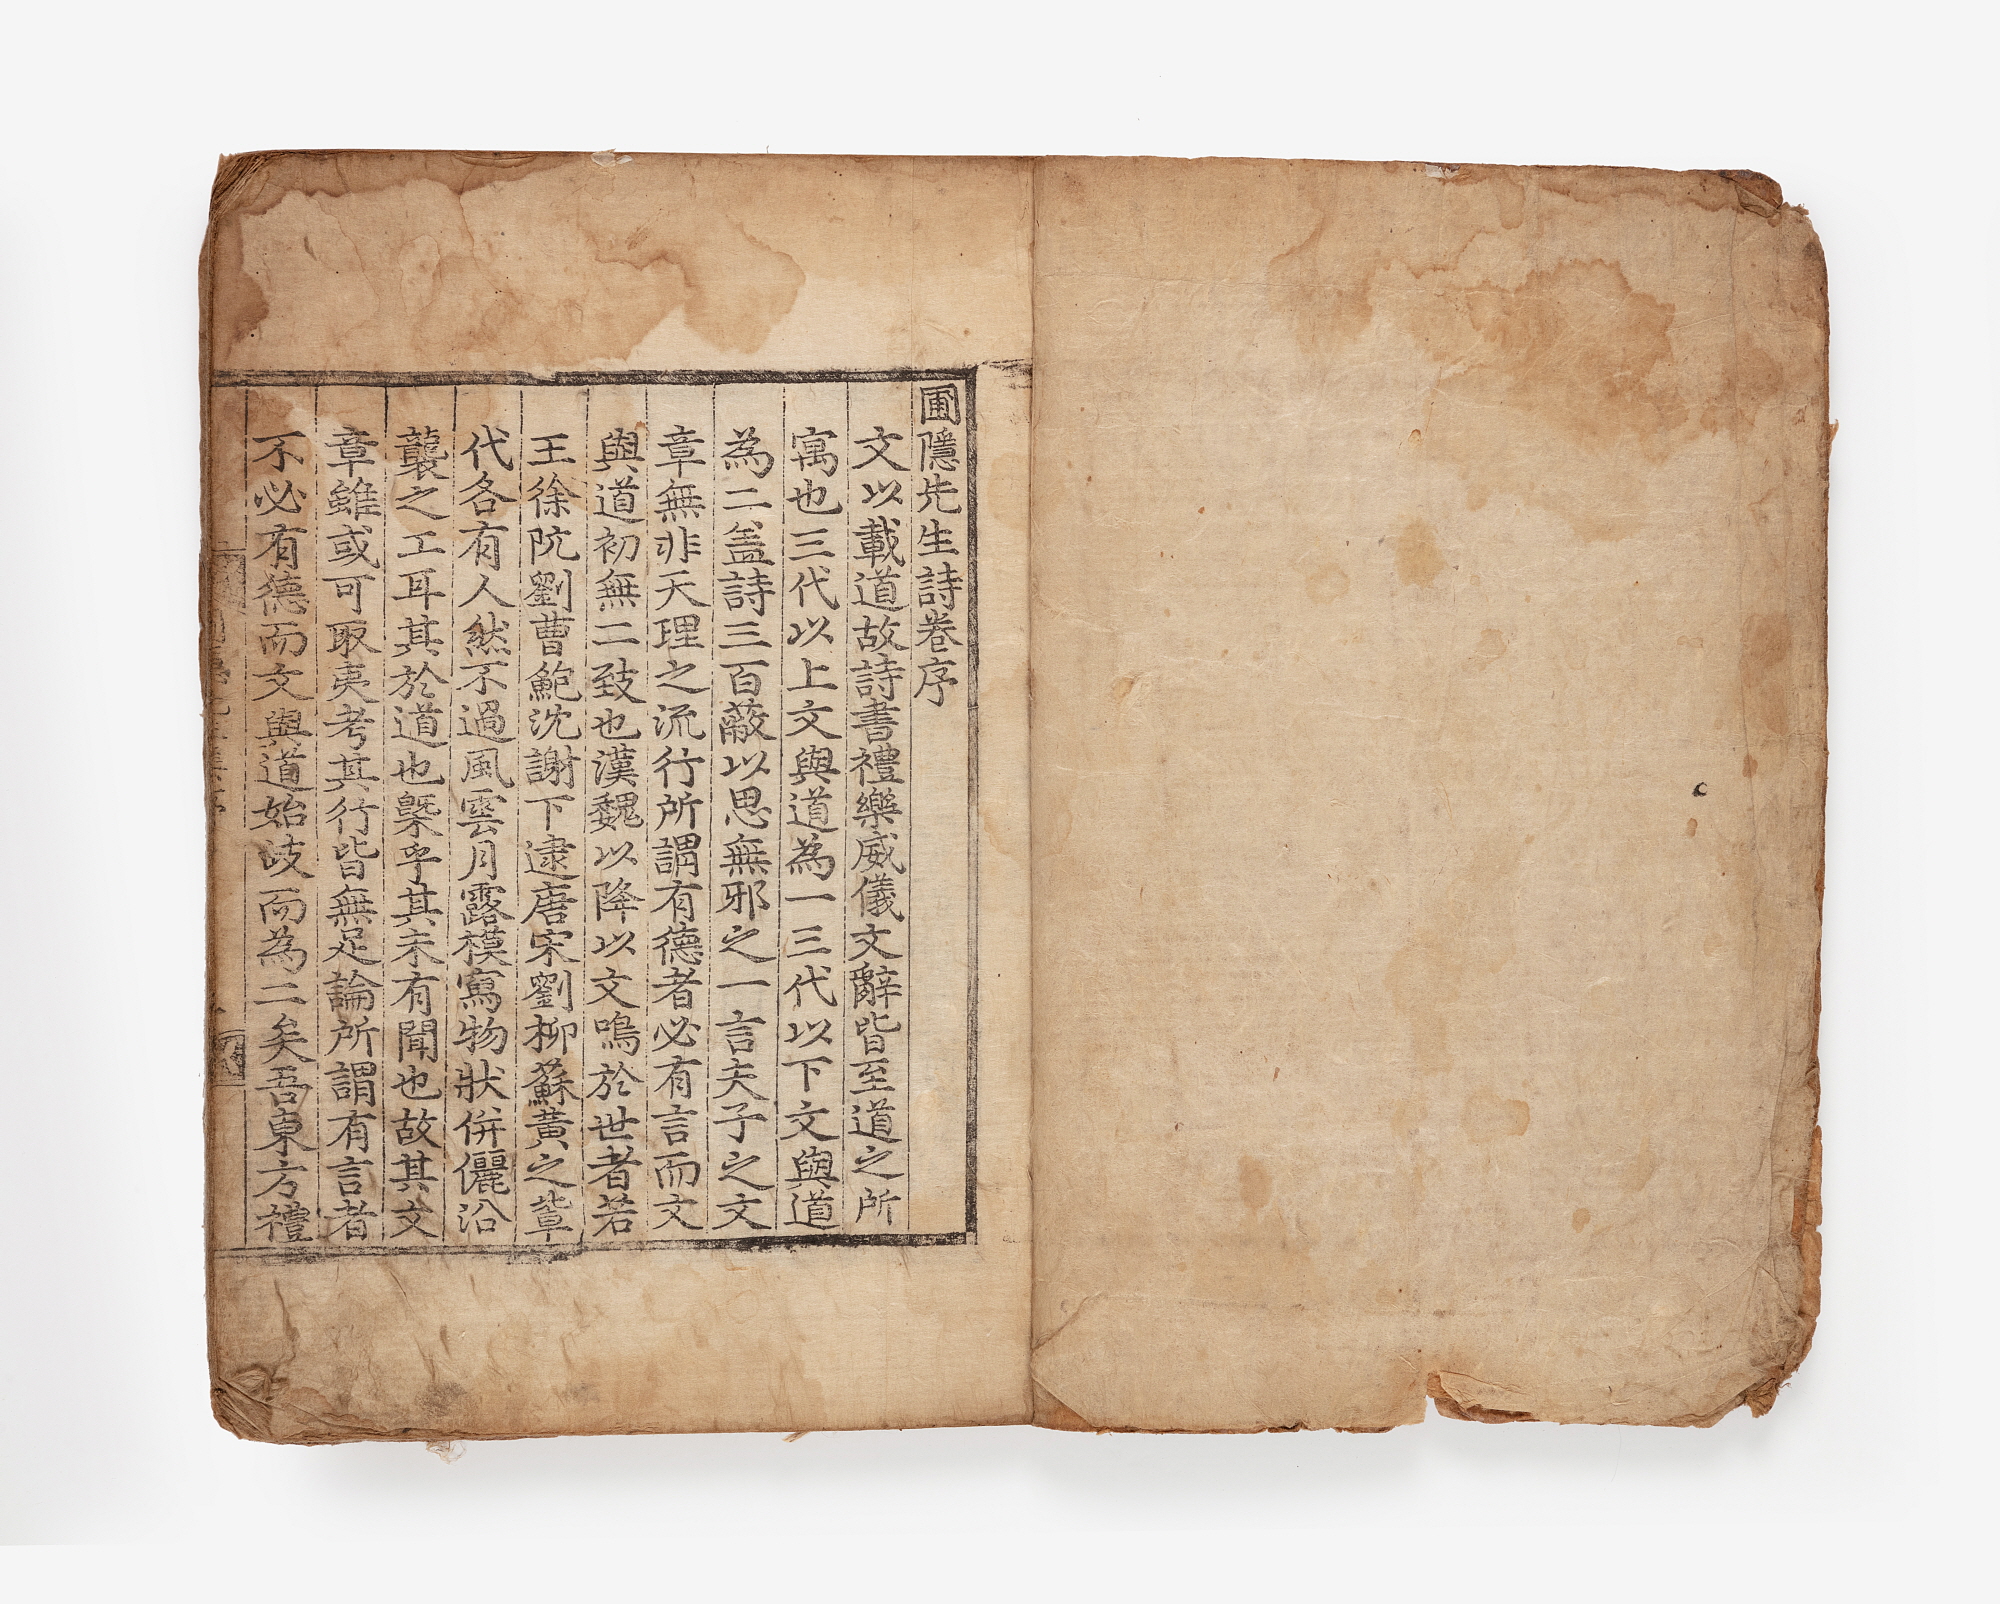 圃隱先生詩卷序
文以載道故詩書禮樂威儀文辭皆至道之所
寓也三代以上文與道為一三代以下文與道
為二盖詩三百蔽以思無邪之一言夫子之文
章無非天理之流行所謂有德者必有言而文
與道初無二致也漢魏以降以文鳴於世者若
王徐阮劉曹鮑沈謝下逮唐宋劉柳蘇黃之輩
代各有人然不過風雲月露模寫物狀倂儷沿
襲之工耳其於道也槩乎其未有聞也故其文
章雖或可取夷考其行皆無足論所謂有言者
不必有德而文與道始岐而為二矣吾東方禮